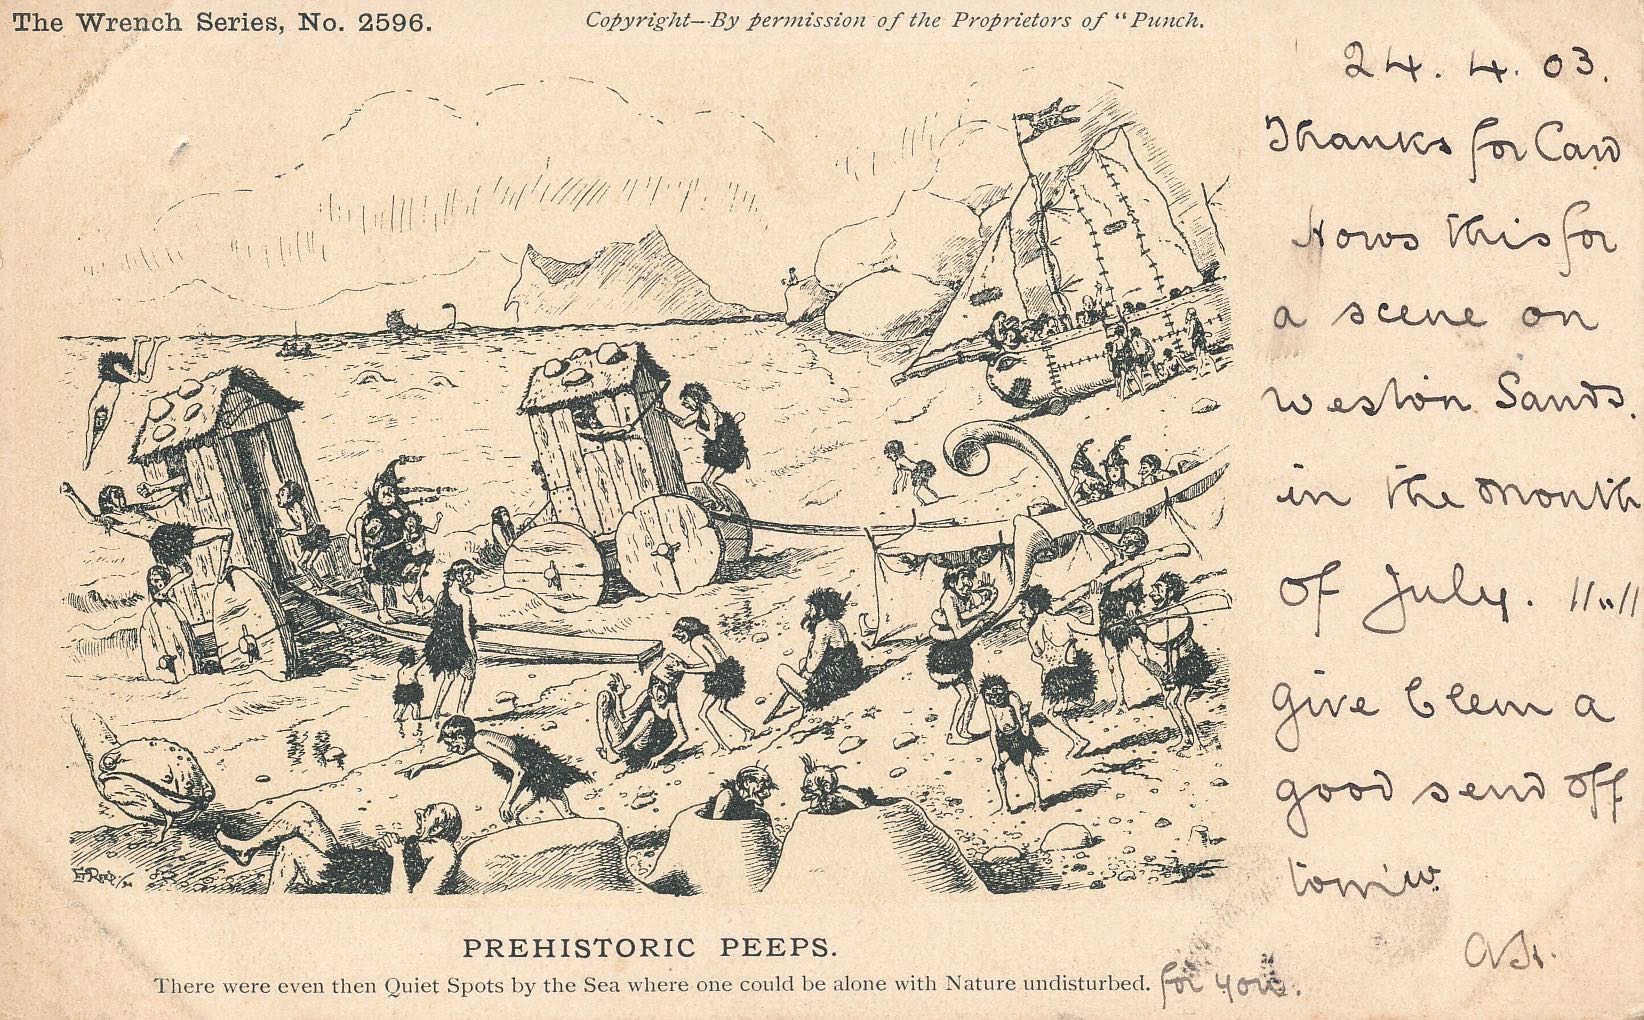 The Wrench Series, No. 2596.
Copyright—By permission of the Proprietors of "Punch.
24. 4. 03.
Thanks for Card
Hows this for
a scene on
Weston Sands.
in the month
of July. !!"!!
give Clem a
good send off
tomw.
PREHISTORIC PEEPS.
There were even then Quiet Spots by the Sea where one could be alone with Nature undisturbed.
for you.